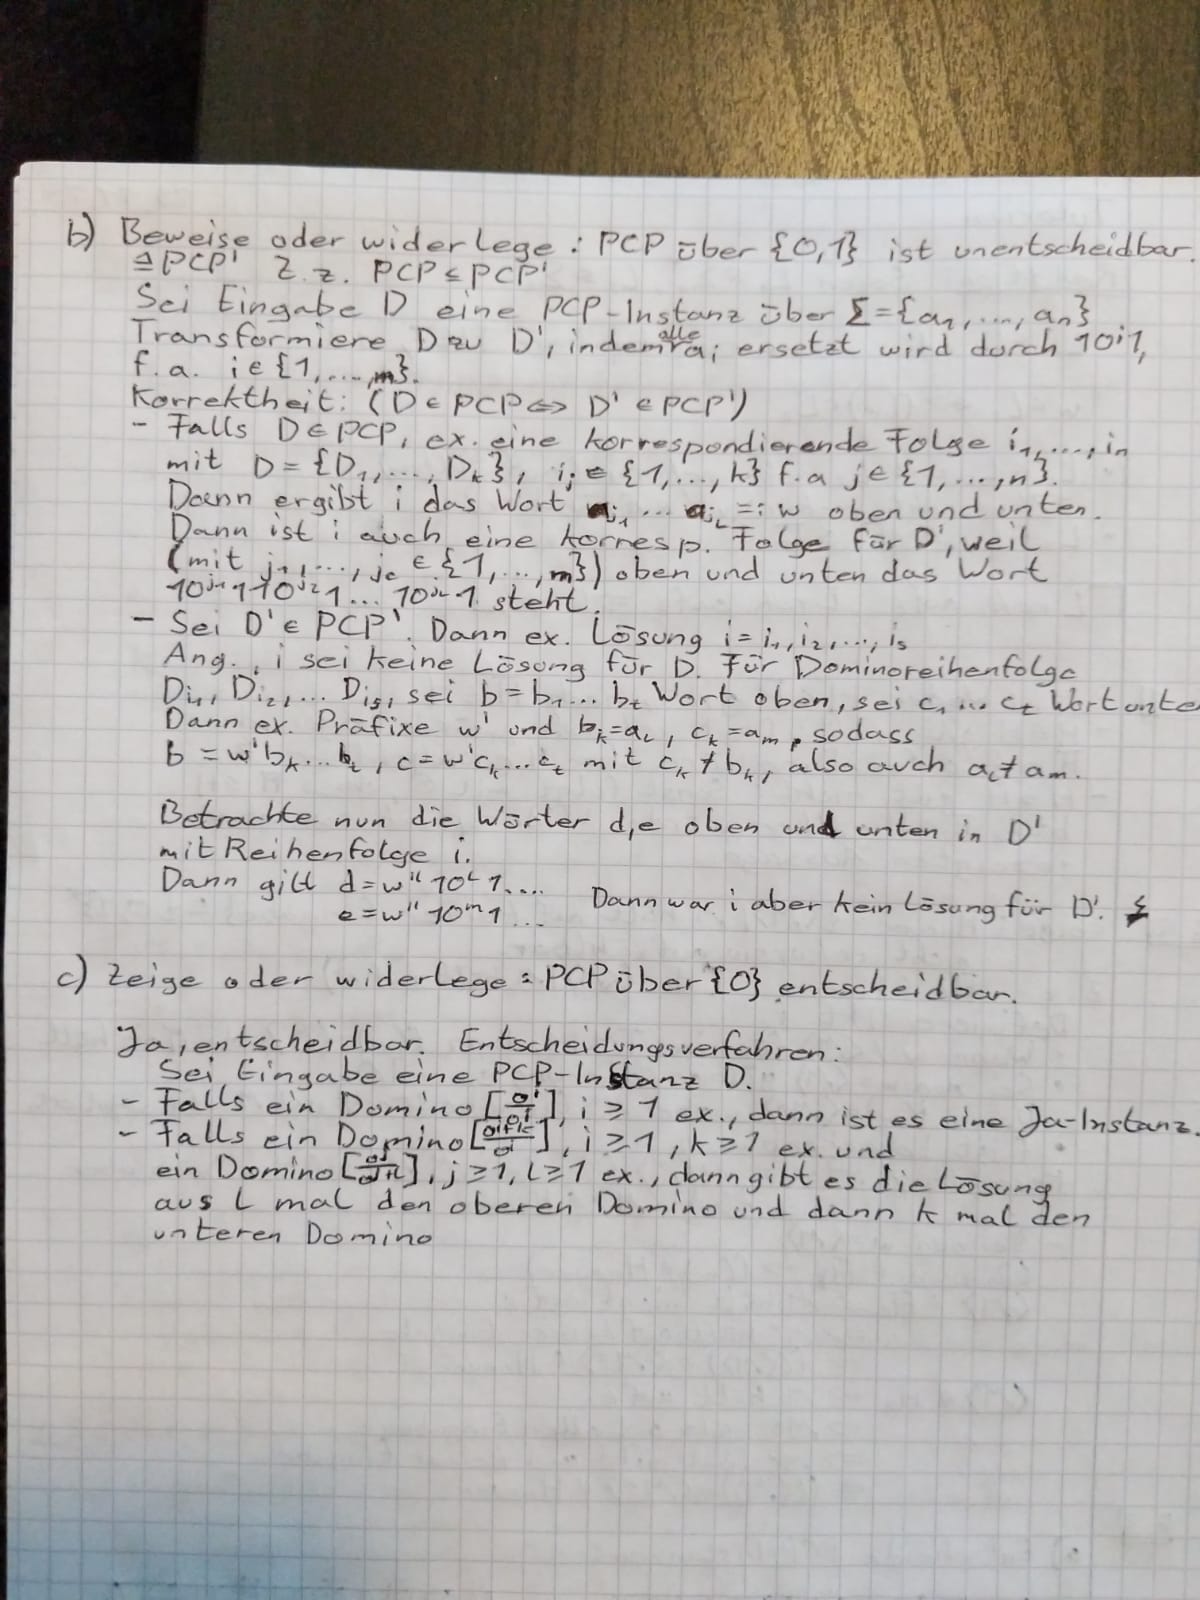 b) Beweise oder widerlege : PCP über {0,1} ist unentscheidbar.
≙ PCP' Z.z. PCP ≤ PCP'
Sei Eingabe D eine PCP-Instanz über Σ = {a₁, ..., aₙ}
Transformiere D zu D', indem alle aᵢ ersetzt wird durch 10ⁱ1,
f.a. i ∈ {1, ..., m}.
Korrektheit: (D ∈ PCP ⇔ D' ∈ PCP')
- Falls D ∈ PCP, ex. eine korrespondierende Folge i₁, ..., iₙ
mit D = {D₁, ..., Dₖ}, iⱼ ∈ {1, ..., k} f.a j ∈ {1, ..., n}.
Dann ergibt i das Wort a_{j₁} ... a_{j_L} =: w oben und unten.
Dann ist i auch eine korresp. Folge für D', weil
(mit j₁, ..., j_L ∈ {1, ..., m}) oben und unten das Wort
10^{j₁}110^{j₂}1 ... 10^{j_L}1 steht.
- Sei D' ∈ PCP'. Dann ex. Lösung i = i₁, i₂, ..., iₛ
Ang., i sei keine Lösung für D. Für Dominoreihenfolge
D_{i₁}, D_{i₂}, ... D_{iₛ}, sei b = b₁ ... bₜ Wort oben, sei c₁ ... cₜ Wort unte
Dann ex. Präfixe w' und bₖ = a_L, cₖ = aₘ, sodass
b = w'bₖ ... bₜ, c = w'cₖ ... cₜ mit cₖ ≠ bₖ, also auch a_L ≠ aₘ.
Betrachte nun die Wörter d,e oben und unten in D'
mit Reihenfolge i.
Dann gilt d = w'' 10^L 1 ....
e = w'' 10^m 1 ... Dann war i aber kein Lösung für D'. ↯
c) Zeige oder widerlege : PCP über {0} entscheidbar.
Ja, entscheidbar. Entscheidungsverfahren:
Sei Eingabe eine PCP-Instanz D.
- Falls ein Domino [0ⁱ/0ⁱ], i ≥ 1 ex., dann ist es eine Ja-Instanz.
- Falls ein Domino [0^{i+k}/0ⁱ], i ≥ 1, k ≥ 1 ex. und
ein Domino [0^j/0^{j+L}], j ≥ 1, L ≥ 1 ex., dann gibt es die Lösung
aus L mal den oberen Domino und dann k mal den
unteren Domino